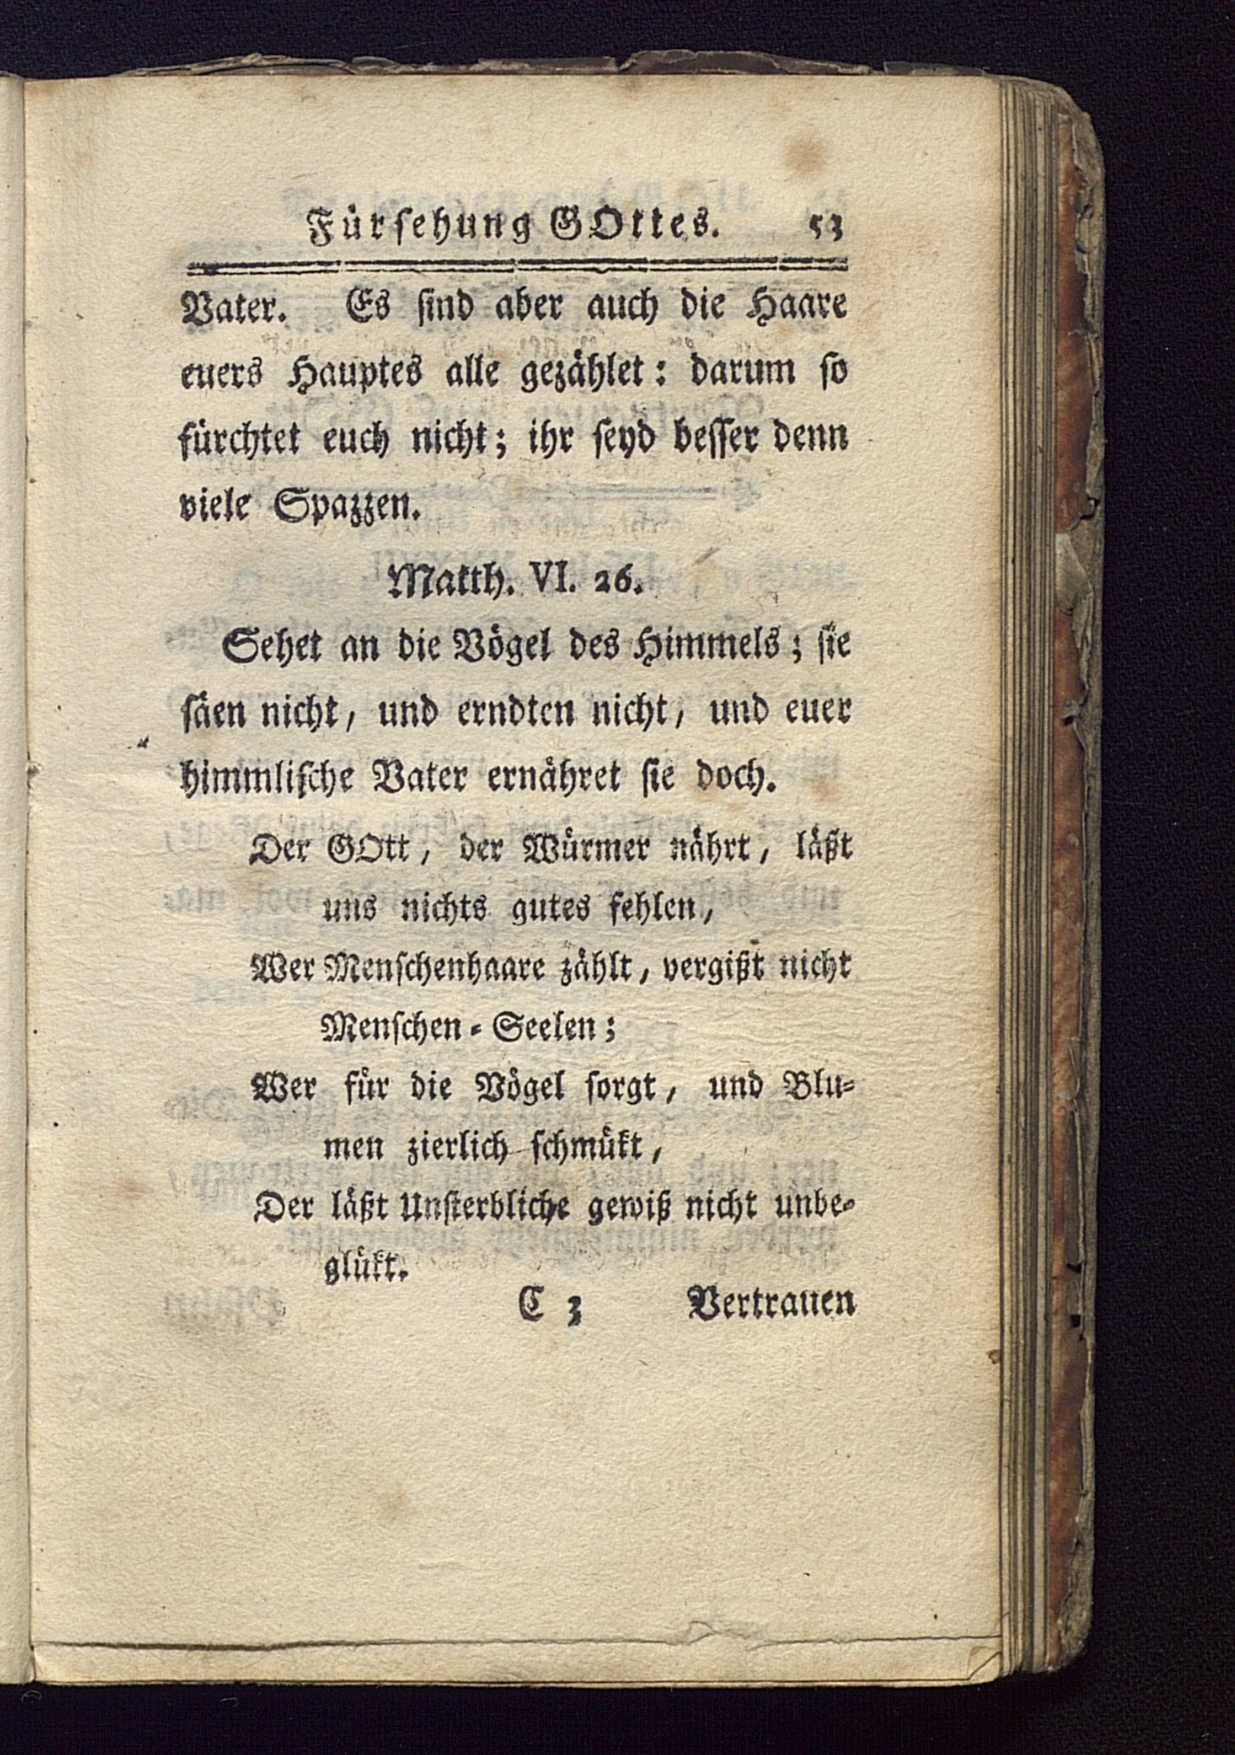 Fürſehung GOttes. 53
Vater. Es ſind aber auch die Haare
euers Hauptes alle gezählet: darum ſo
fürchtet euch nicht; ihr ſeyd beſſer denn
viele Spazzen.
Matth. VI. 26.
Sehet an die Vögel des Himmels; ſie
ſäen nicht, und erndten nicht, und euer
himmliſche Vater ernähret ſie doch.
Der GOtt, der Würmer nährt, läßt
uns nichts gutes fehlen,
Wer Menſchenhaare zählt, vergißt nicht
Menſchen-Seelen;
Wer für die Vögel ſorgt, und Blu-
men zierlich ſchmükt,
Der läßt Unſterbliche gewiß nicht unbe-
glükt.
C 3 Vertrauen